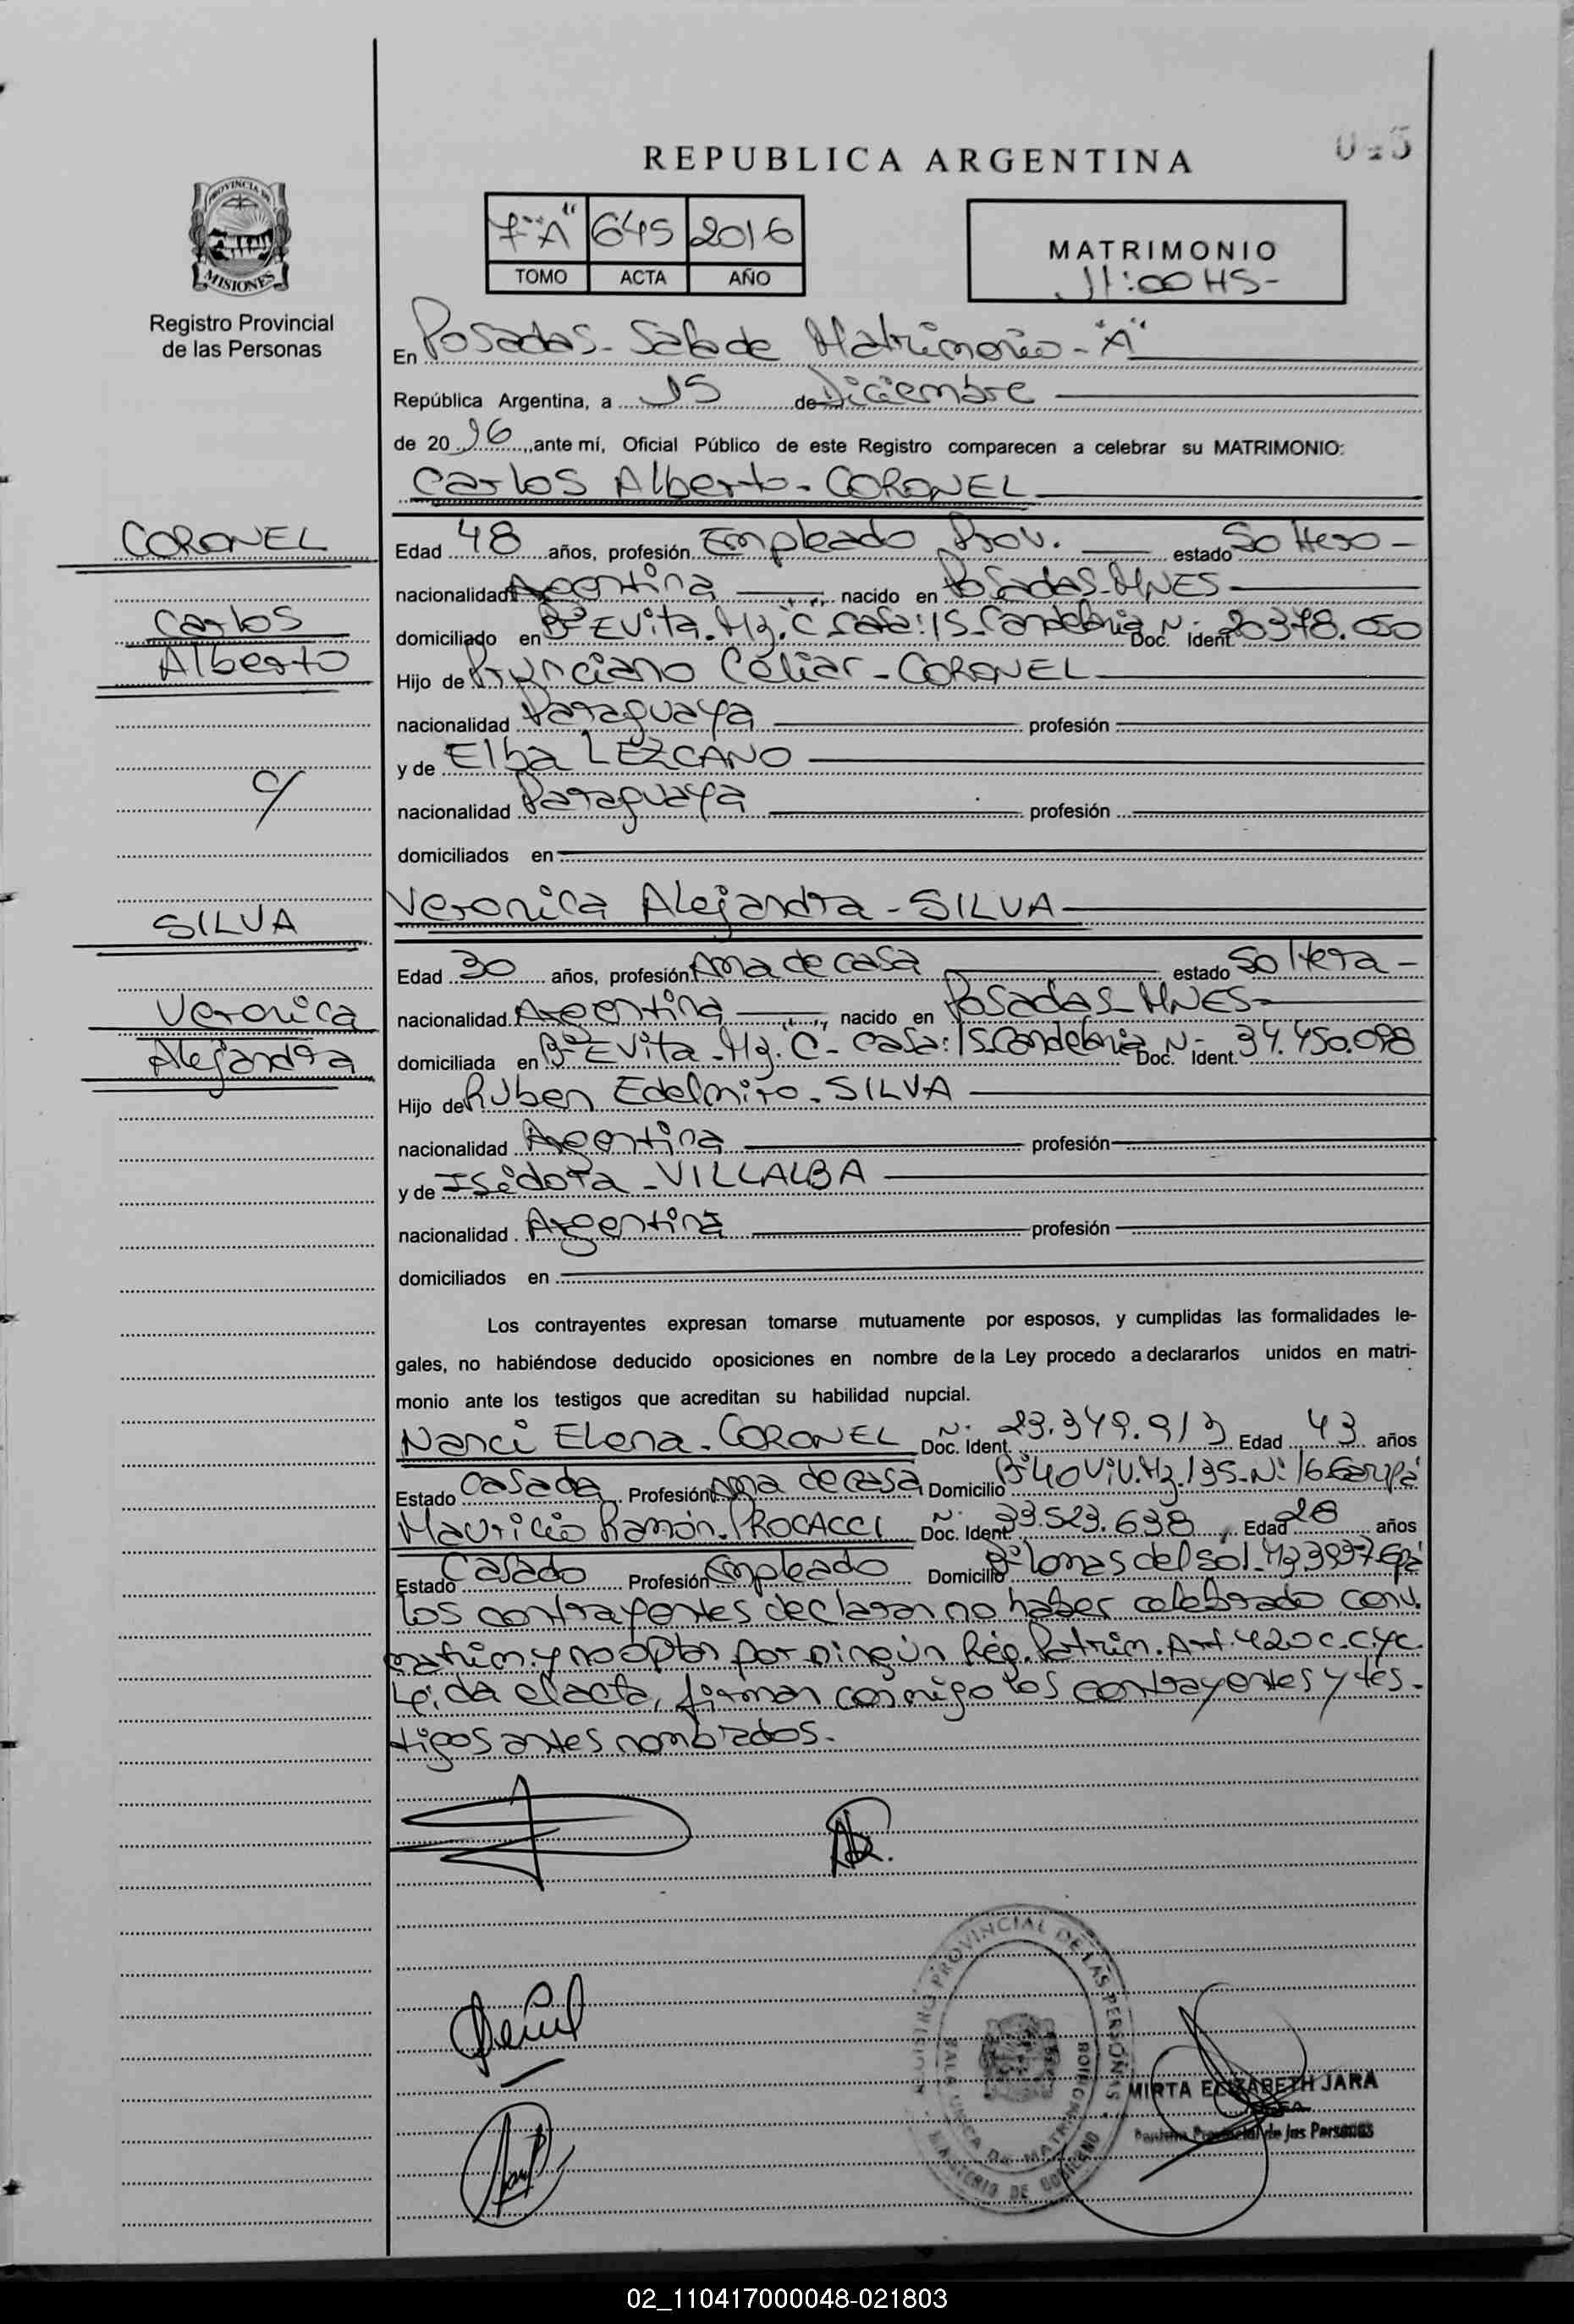 REPUBLICA ARGENTINA
PROVINCIA DE
MISIONES
Registro Provincial
de las Personas
7° "A" 645 2016
TOMO ACTA AÑO
MATRIMONIO
11:00 HS-
En Posadas - Sala de Matrimonio - "A"
República Argentina, a 15 de Diciembre
de 2016, ante mí, Oficial Público de este Registro comparecen a celebrar su MATRIMONIO:
Carlos Alberto - CORONEL
CORONEL
Carlos
Alberto
c/
SILVA
Veronica
Alejandra
Edad 48 años, profesión Empleado Prov. estado Soltero -
nacionalidad Argentina nacido en Posadas - MNES
domiciliado en B° Evita - Mz. "C" casa: 15 - Candelaria Doc. Ident. N° 20.378.050
Hijo de Celiar - CORONEL
nacionalidad Paraguaya profesión
y de Elba LEZCANO
nacionalidad Paraguaya profesión
domiciliados en
Veronica Alejandra - SILVA
Edad 30 años, profesión Ama de casa estado Soltera -
nacionalidad Argentina nacido en Posadas - MNES -
domiciliada en B° Evita - Mz. "C" - casa: 15 - Candelaria Doc. Ident. N° 34.450.098
Hijo de Ruben Edelmiro - SILVA
nacionalidad Argentina profesión
y de Isidora - VILLALBA
nacionalidad Argentina profesión
domiciliados en
Los contrayentes expresan tomarse mutuamente por esposos, y cumplidas las formalidades le-
gales, no habiéndose deducido oposiciones en nombre de la Ley procedo a declararlos unidos en matri-
monio ante los testigos que acreditan su habilidad nupcial.
Nanci Elena - CORONEL Doc. Ident. N° 23.349.913 Edad 43 años
Estado Casada Profesión Ama de casa Domicilio B° 40 Viv. Mz. 135 - N° 16 Garupá
Mauricio Ramón - PROCACCI Doc. Ident. N° 33.523.638 Edad 28 años
Estado Casado Profesión Empleado Domicilio B° Lomas del Sol - Mz
Los contrayentes declaran no haber celebrado conv.
matrim. y no optan por ningún Rég. Patrim. Art. 420 C.C.y C.
Leída el acta, firman conmigo los contrayentes y tes-
tigos antes nombrados.
REGISTRO PROVINCIAL DE LAS PERSONAS
SALA UNICA DE MATRIMONIOS
MINISTERIO DE GOBIERNO
MIRTA ELIZABETH JARA
JEFA
Provincial de las Personas
02_110417000048-021803